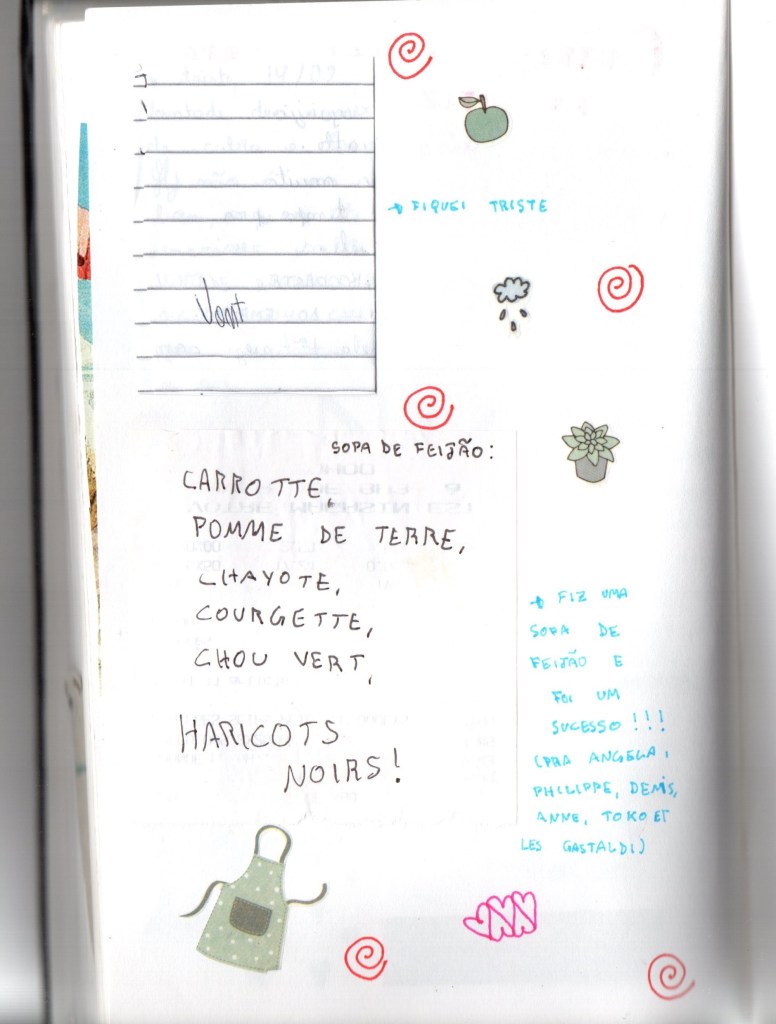 → FIQUEI TRISTE
Vont
SOPA DE FEIJÃO:
CARROTTE,
POMME DE TERRE,
CHAYOTE,
COURGETTE,
CHOU VERT,
HARICOTS
NOIRS!
→ FIZ UMA
SOPA DE
FEIJÃO E
FOI UM
SUCESSO!!!
(PRA ANGELA,
PHILIPPE, DENIS,
ANNE, TOKO ET
LES GASTALDI)